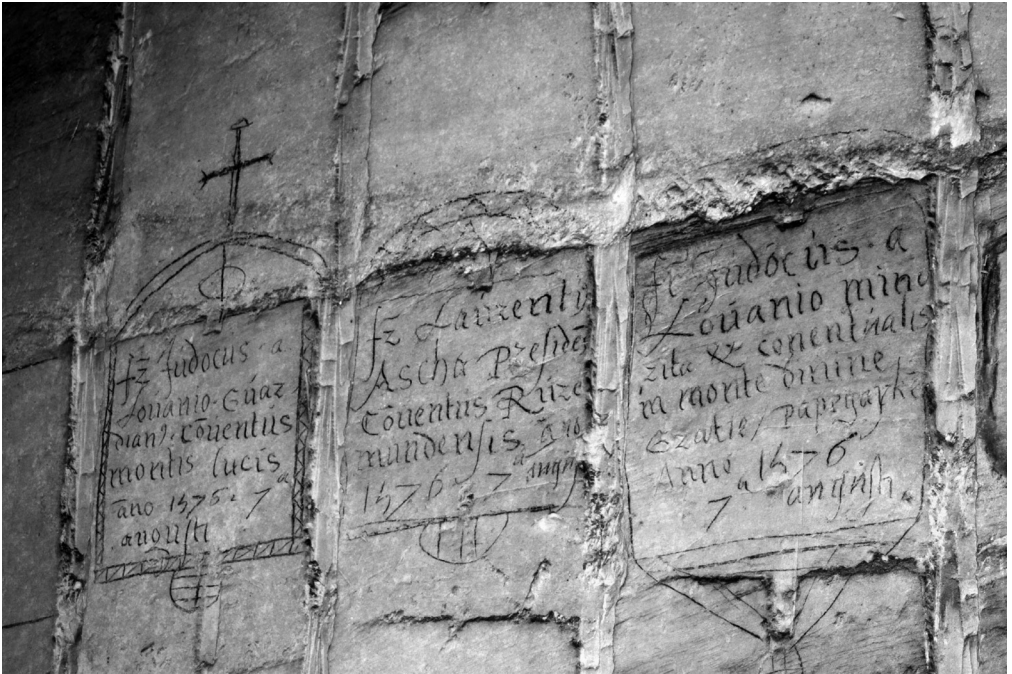 fr Judocus · a
Lovanio · Guar
dian9 · cōventus
montis lucis
āno 1575 · 7 a
augusti
fr Laurenti9
Ascha Preside
Cōventus Rure
mundensis āno
1576 7 a augusti
fr Judocus · a
Lovanio mino
rita et conentualis
in monte divine
Gratie, papegayk
Anno 1576
7 a augusti